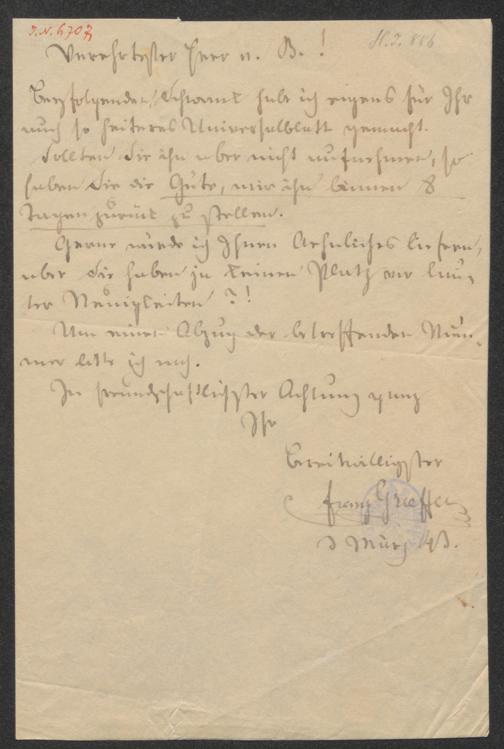 J.N. 6707
H.I. 886
Verehrtester Herr v. B.!
Beyfolgenden Schwank habe ich eigens für Ihr
auch so heiteres Universalblatt gemacht.
Sollten Sie ihn aber nicht aufnehmen, so
haben Sie die Güte, mir ihn binnen 8
Tagen zurück zu stellen.
Gerne würde ich Ihnen Aehnliches liefern,
aber Sie haben ja keinen Platz vor lau-
ter Neuigkeiten?!
Um einen Abzug der betreffenden Num-
mer bitte ich auch.
In freundschaftlichster Achtung ganz
Ihr
Bereitwilligster
Franz Gräffer
März 43.